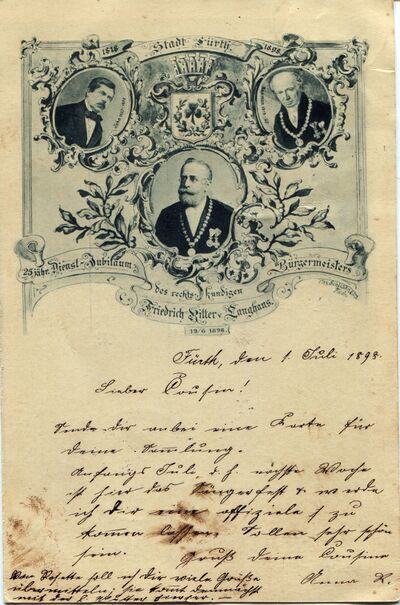 1818
Stadt Fürth.
1898
25 jähr. Dienst-Jubiläum
des rechtskundigen
Bürgermeisters
Friedrich Ritter v. Langhans.
19/6 1898.
Fürth, den 1. Juli 1898.
Lieber Cousin!
Sende Dir anbei eine Karte für
Deine Sammlung.
Anfangs Juli d. h. nächste Woche
ist hier das Sängerfest & werde
ich Dir eine offiziele
kommen lassen. Sollen sehr schön
sein. Gruß Deine Cousine
Anna
Von Rosette soll ich Dir viele Grüße
übermitteln, sie